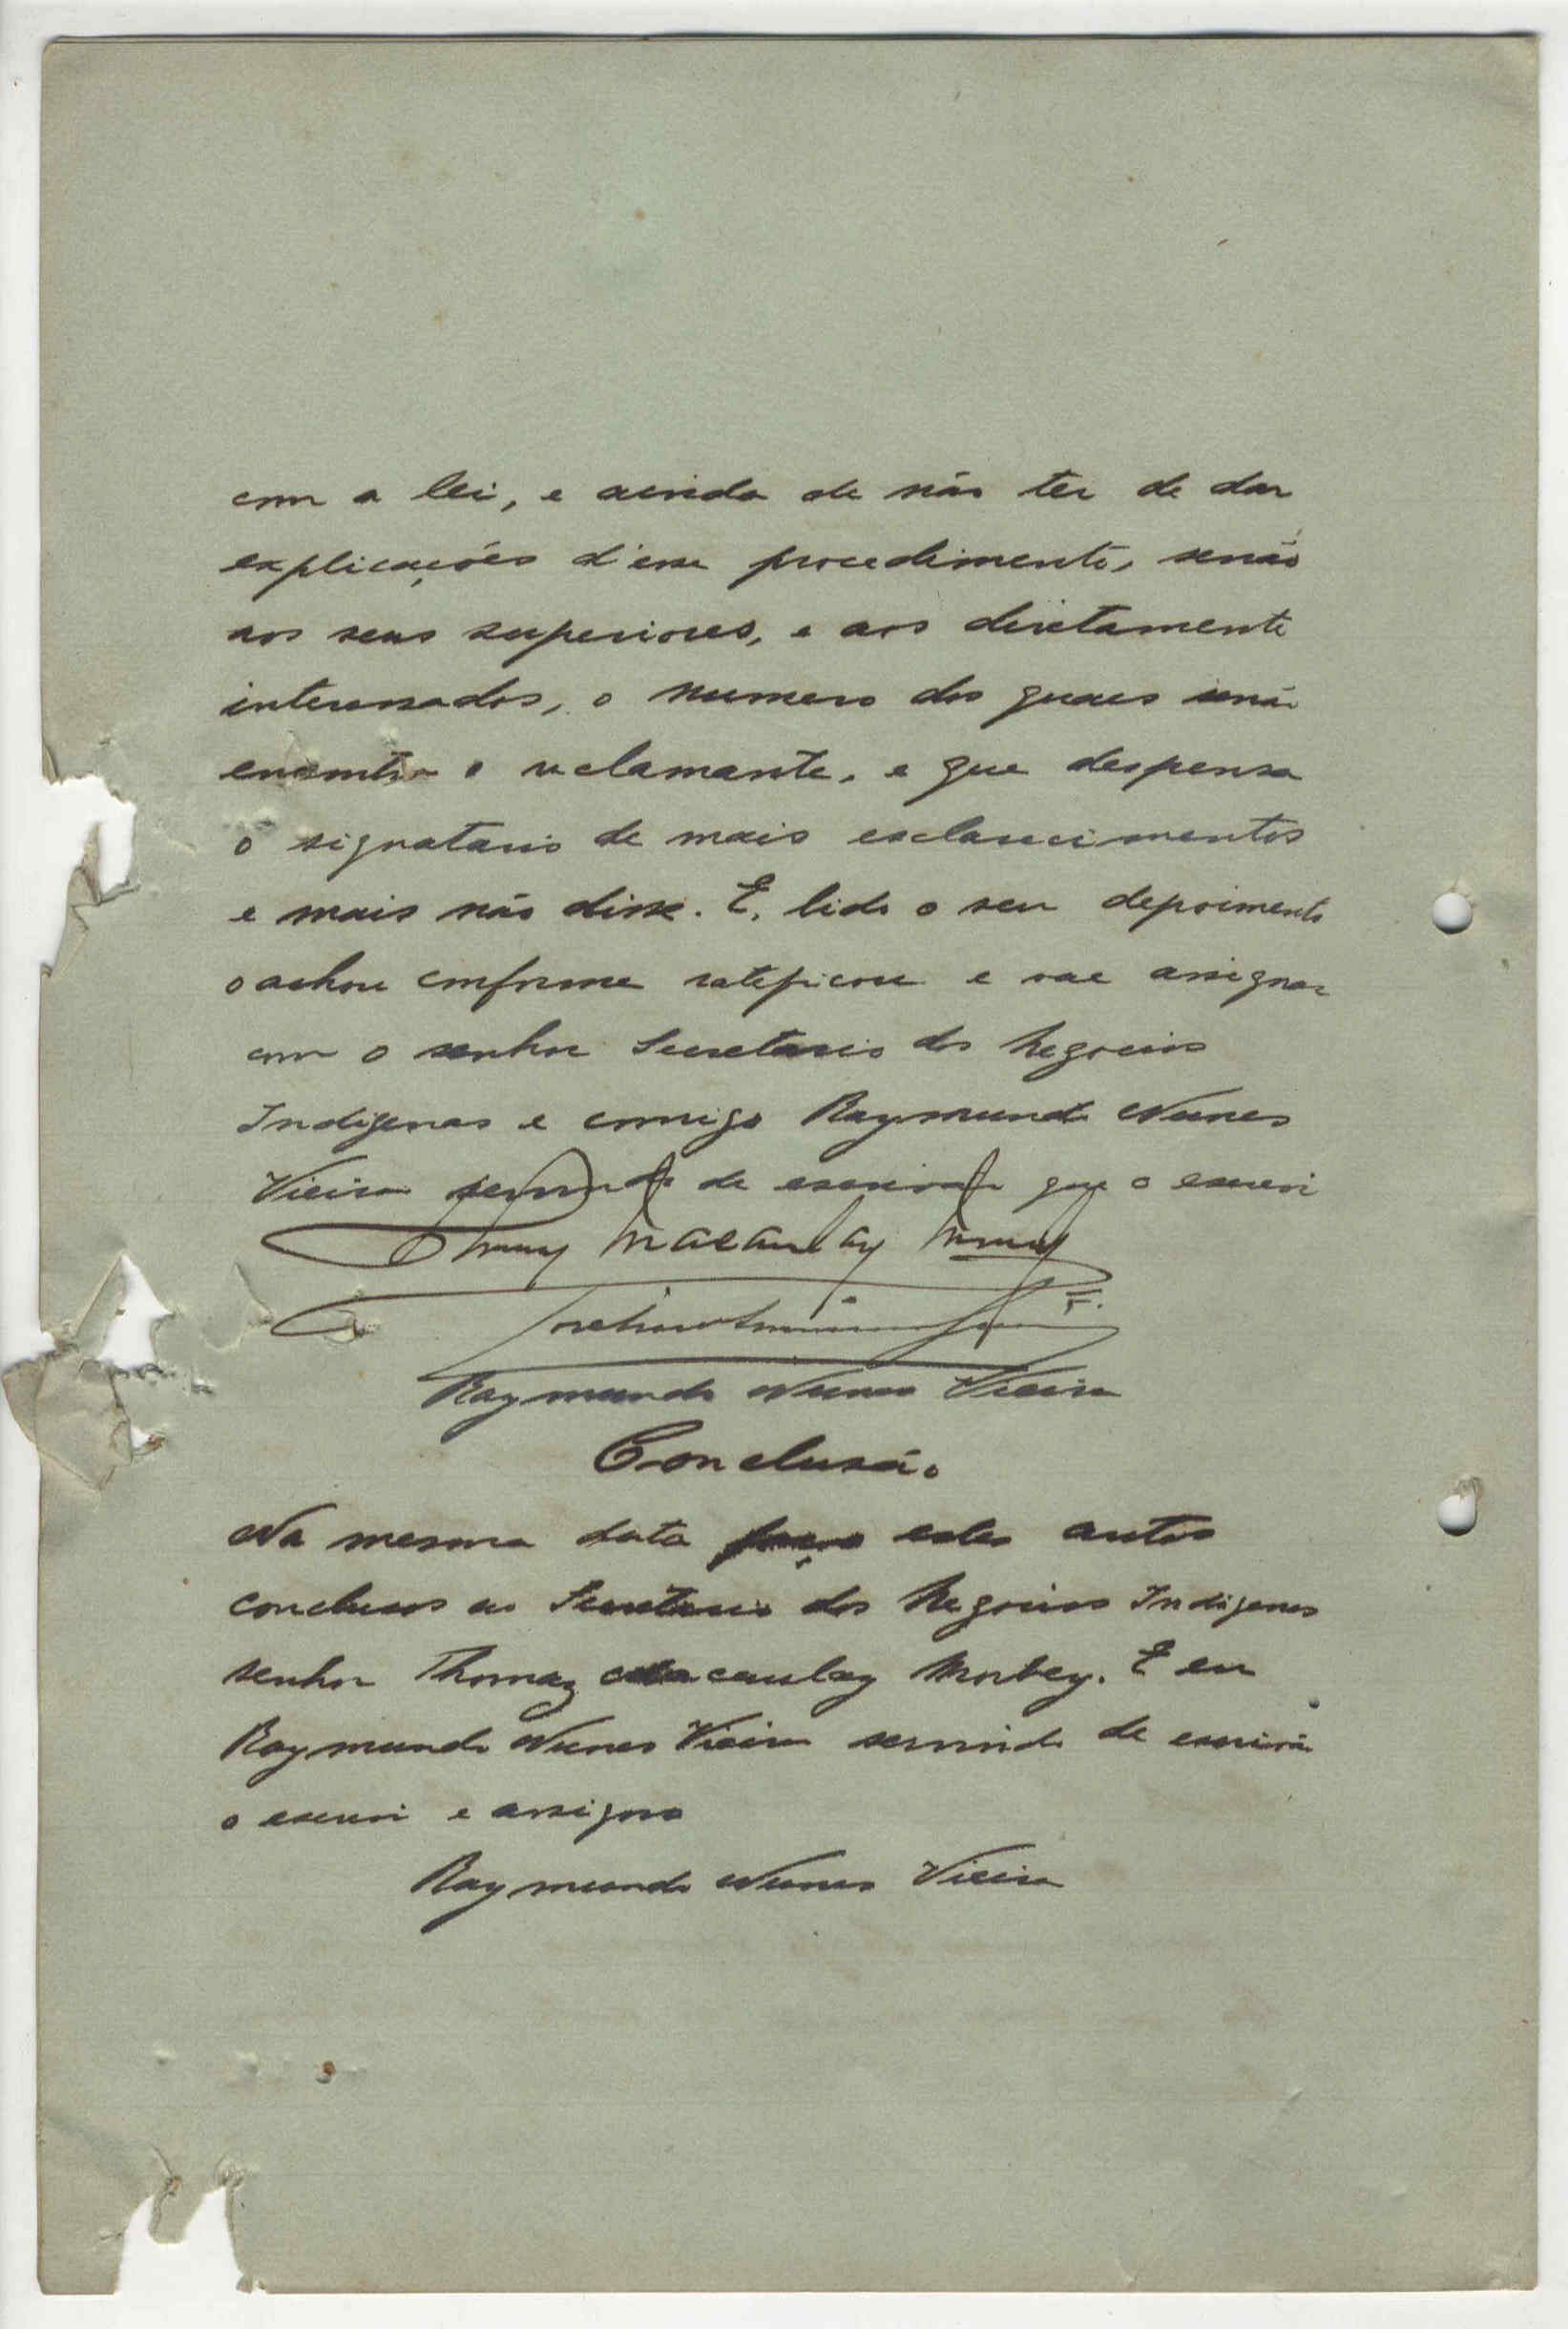 com a lei, e ainda de não ter de dar
explicações d'esse procedimento, senão
aos seus superiores, e aos diretamente
interessados, o numero dos quaes senão
encontra o reclamante, e que despensa
o signatario de mais esclarecimentos
e mais não disse. E, lido o seu depoimento
o achou conforme ratificou e vae assignar
com o senhor Secretario dos Negocios
Indigenas e comigo Raymundo Nunes
Vieira servindo de escrivão que o escrevi
Thomaz Macaulay
Raymundo Nunes Vieira
Conclusão
Na mesma data faço estes autos
conclusos ao Secretario dos Negocios Indigenas
senhor Thomaz Macaulay Morbey. E eu
Raymundo Nunes Vieira servindo de escrivão
o escrevi e assigno
Raymundo Nunes Vieira